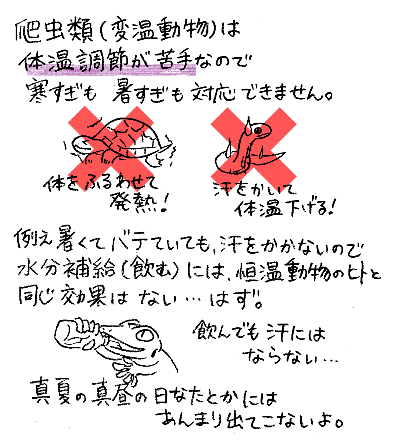 爬虫類(変温動物)は
体温調節が苦手なので
寒すぎも 暑すぎも対応できません。
体をふるわせて
発熱!
汗をかいて
体温下げる!
例え暑くてバテていても、汗をかかないので
水分補給(飲む)には、恒温動物のヒトと
同じ効果は ない…はず。
飲んでも汗には
ならない…
真夏の真昼の日なたとかには
あんまり出てこないよ。